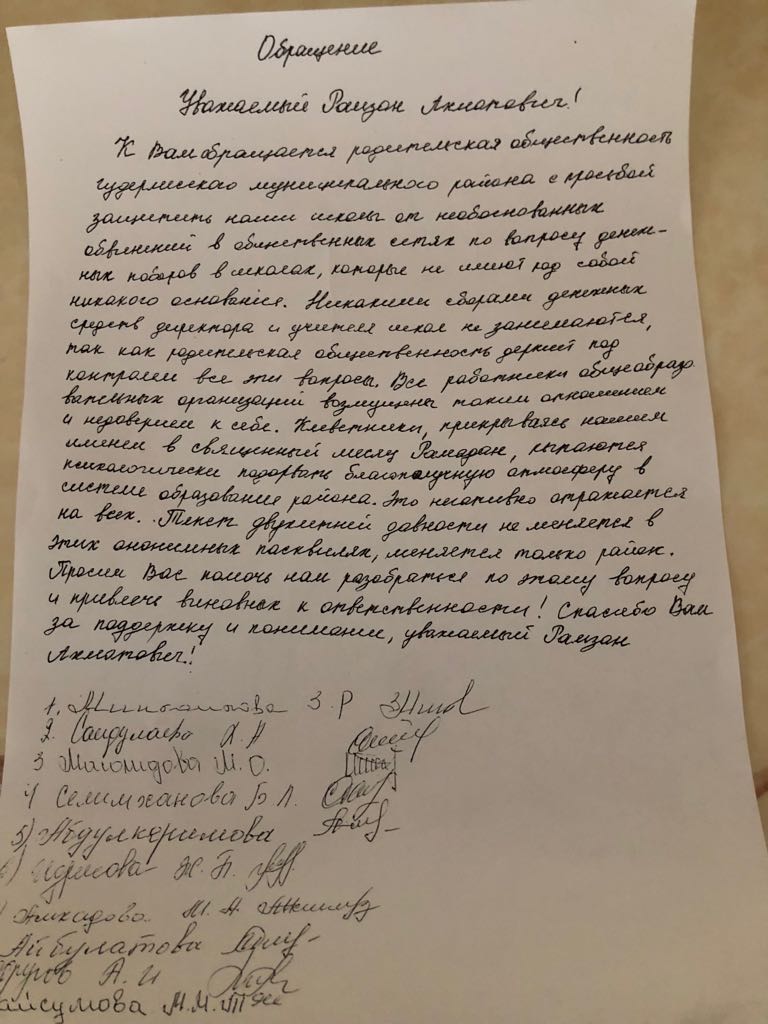 Обращение
Уважаемый Рамзан Ахматович!
К Вам обращается родительская общественность
гудермесского муниципального района с просьбой
защитить наши школы от необоснованных
обвинений в общественных сетях по вопросу денеж-
ных поборов в школах, которые не имеют под собой
никакого основания. Никакими сборами денежных
средств директора и учителя школ не занимаются,
так как родительская общественность держит под
контролем все эти вопросы. Все работники общеобразо
вательных организаций возмущены таким отношением
и недоверием к себе. Клеветники, прикрываясь нашим
именем в священный месяц Рамадан, пытаются
психологически подорвать благополучную атмосферу в
системе образования района. Это негативно отражается
на всех. Текст двухлетней давности не меняется в
этих анонимных пасквилях, меняется только район.
Просим Вас помочь нам разобраться по этому вопросу
и привлечь виновных к ответственности! Спасибо Вам
за поддержку и понимание, уважаемый Рамзан
Ахматович!
1. З. Р
2. Х. А
3 Магомадова М. О.
4 Селимханова Б. Л.
5) Абдулкеримова
Идрисова Ж. Б.
Ахкадова М. А
Айбулатова
А. И
айсумова М. М.